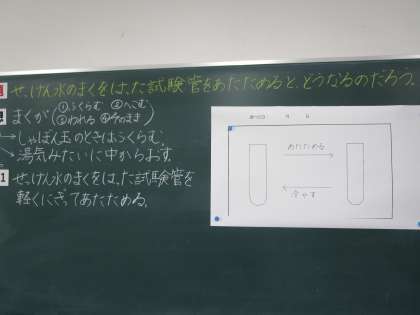 せっけん水のまくをはった試験管をあたためると、どうなるのだろう。
まくが(①ふくらむ ②へこむ
③われる ④そのまま)
→しゃぼん玉のときはふくらむ。
湯気みたいに中からおす。
1 せっけん水のまくをはった試験管を
軽くにぎってあたためる。
あたためる
冷やす